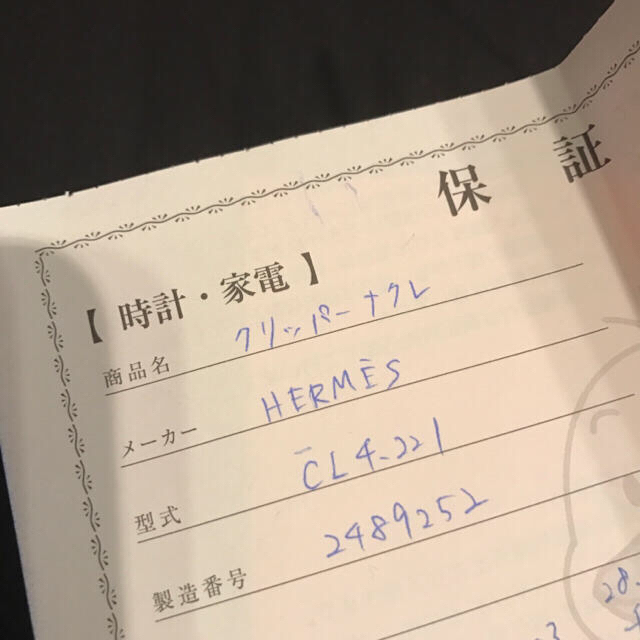 保 証
【 時計・家電 】
商品名 クリッパーナクレ
メーカー HERMÈS
型式 CL4.221
製造番号 2489252
28
3